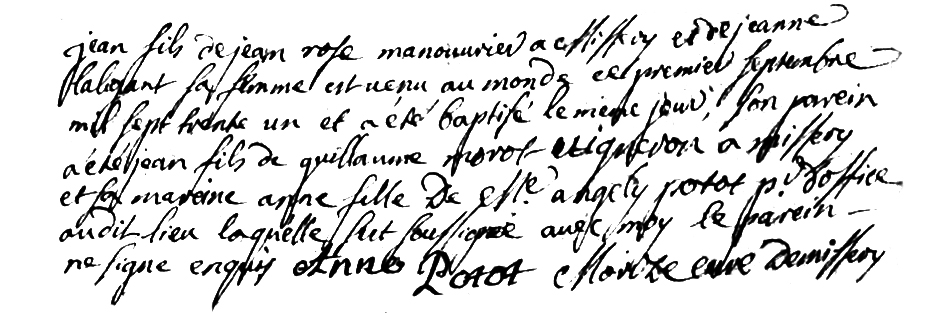 jean fils de jean rose manouurier a Missery et de jeanne
flaligant sa femme est venu au monde ce premier septembre
mil sept trente un et a été baptisé le meme jour, son parein
a été jean fils de guillaume morot vigneron a missery
et sa mareine anne fille de Mr. angely potot pr. d'office
audit lieu laquelle s'est soussignée avec moy le parein
ne signe enquis Anne Potot Morize curé de missery